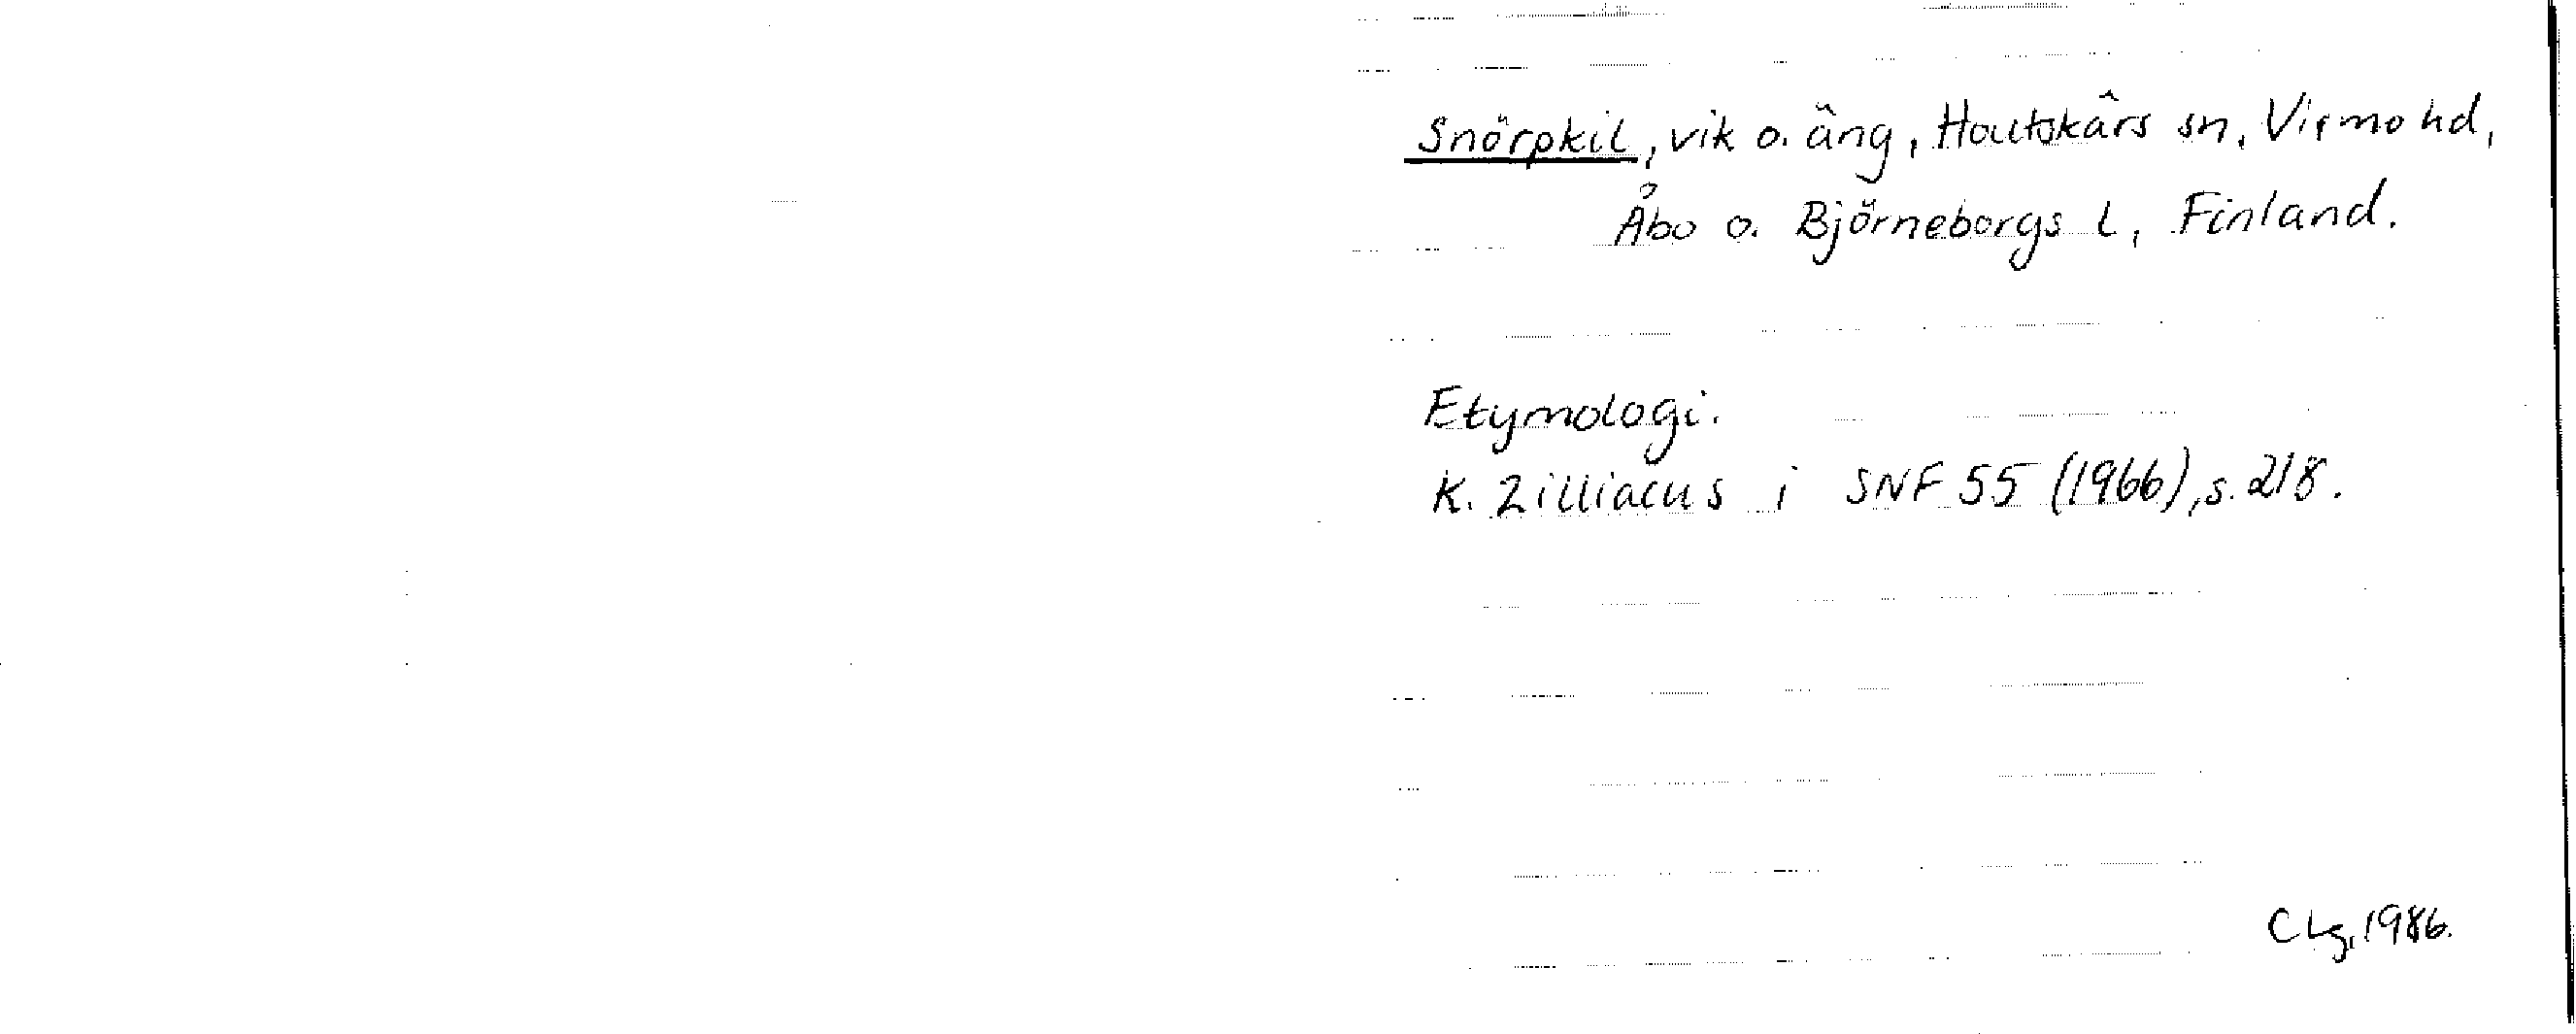 Snörpkil, vik o. äng, Houtskärs sn, Virmo hd,
Åbo o. Björneborgs l, Finland.
Etymologi.
K. Zilliacus i SNF 55 (1966), s. 218.
CLg, 1986.